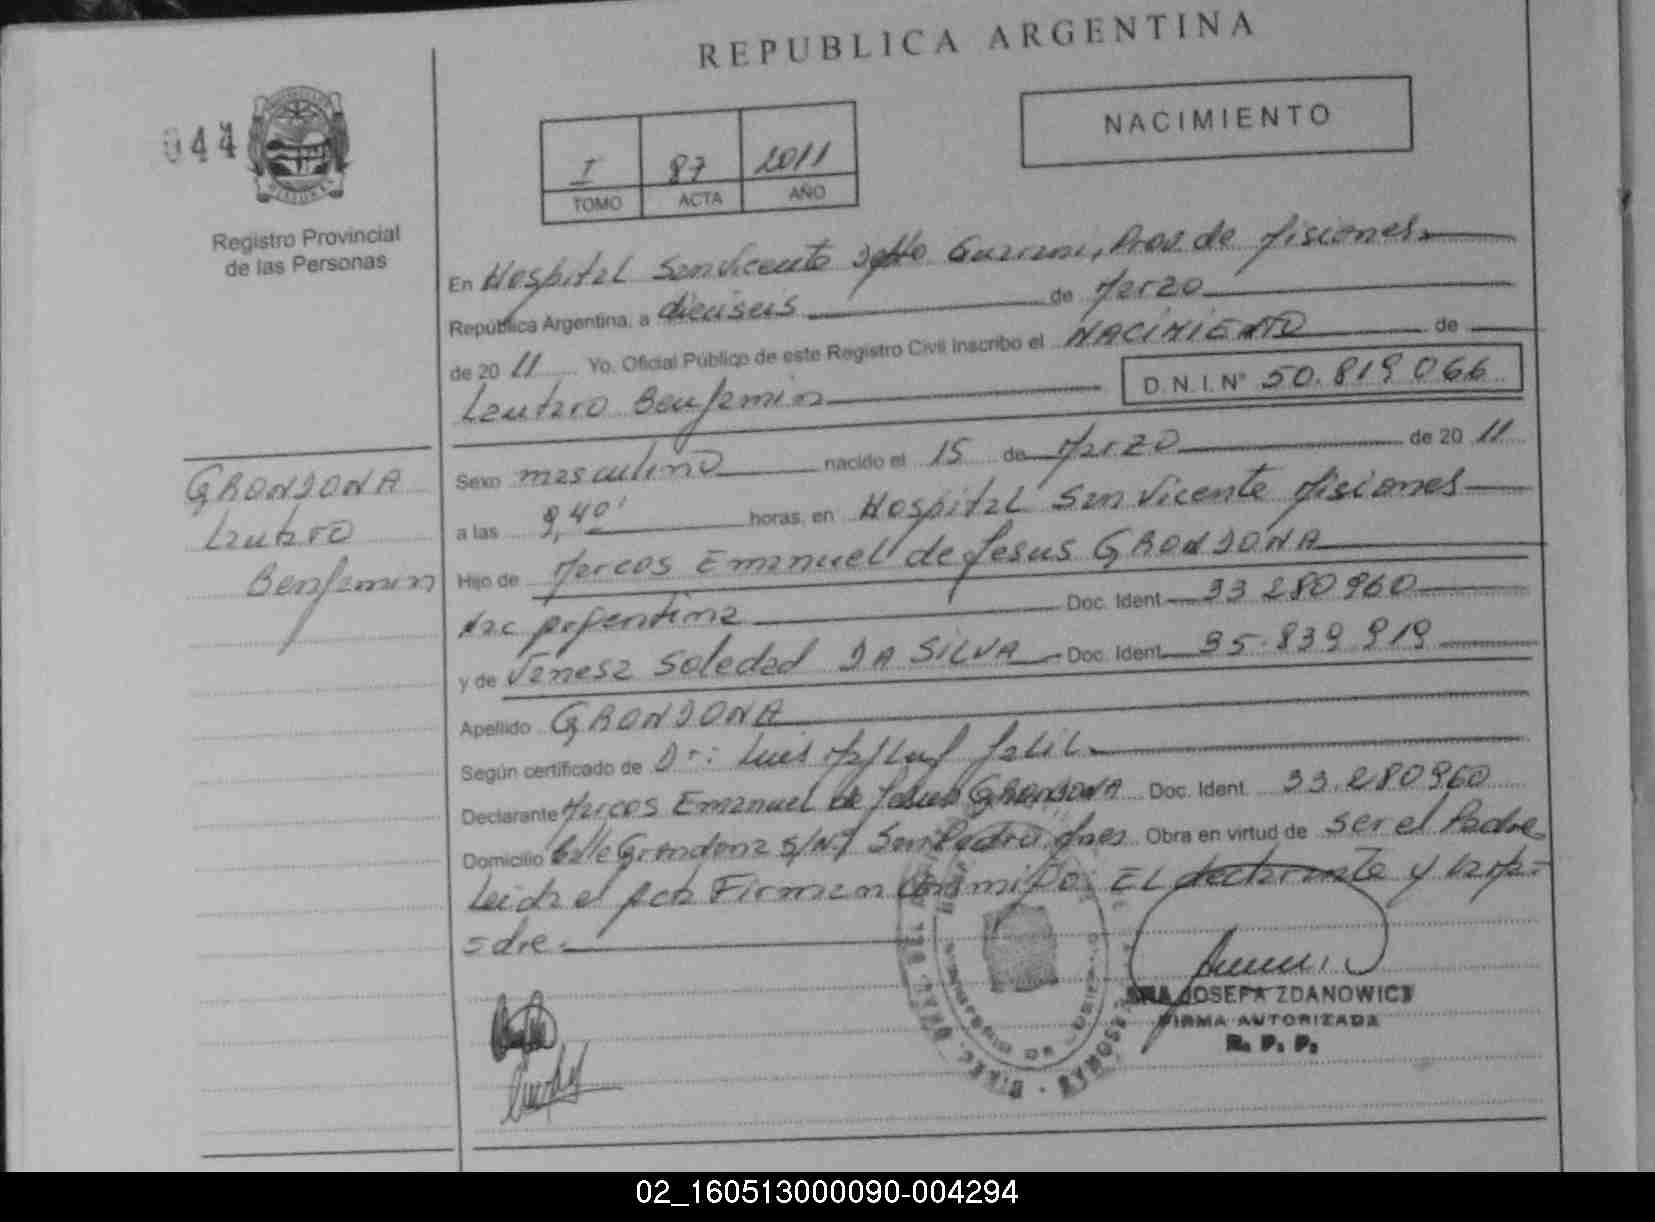 REPUBLICA ARGENTINA
044
NACIMIENTO
I 87 2011
TOMO ACTA AÑO
Registro Provincial
de las Personas
En Hospital San Vicente Dpto Guarani, Prov. de Misiones
República Argentina, a dieciseis de Marzo
de 20 11 Yo, Oficial Público de este Registro Civil inscribo el NACIMIENTO de
Lautaro Benjamin D.N.I. N° 50.819.066
GRONDONA
Lautaro
Benjamin
Sexo masculino nacido el 15 de Marzo de 20 11
a las 8,40' horas, en Hospital San Vicente Misiones
Hijo de Marcos Emanuel de Jesus GRONDONA
Nac Argentina Doc. Ident 33 280 960
y de Vanesa Soledad DA SILVA Doc. Ident 35.839.919
Apellido GRONDONA
Según certificado de Dr: Luis Jalil
Declarante Marcos Emanuel de Jesus GRONDONA Doc. Ident. 33.280960
Domicilio Calle Grondona S/Nº San Pedro Mnes Obra en virtud de ser el Padre
Leida el Acta Firman conmigo: EL declarante y la Ma-
adre
JOSEFA ZDANOWICZ
FIRMA AUTORIZADA
R. P. P.
02_160513000090-004294